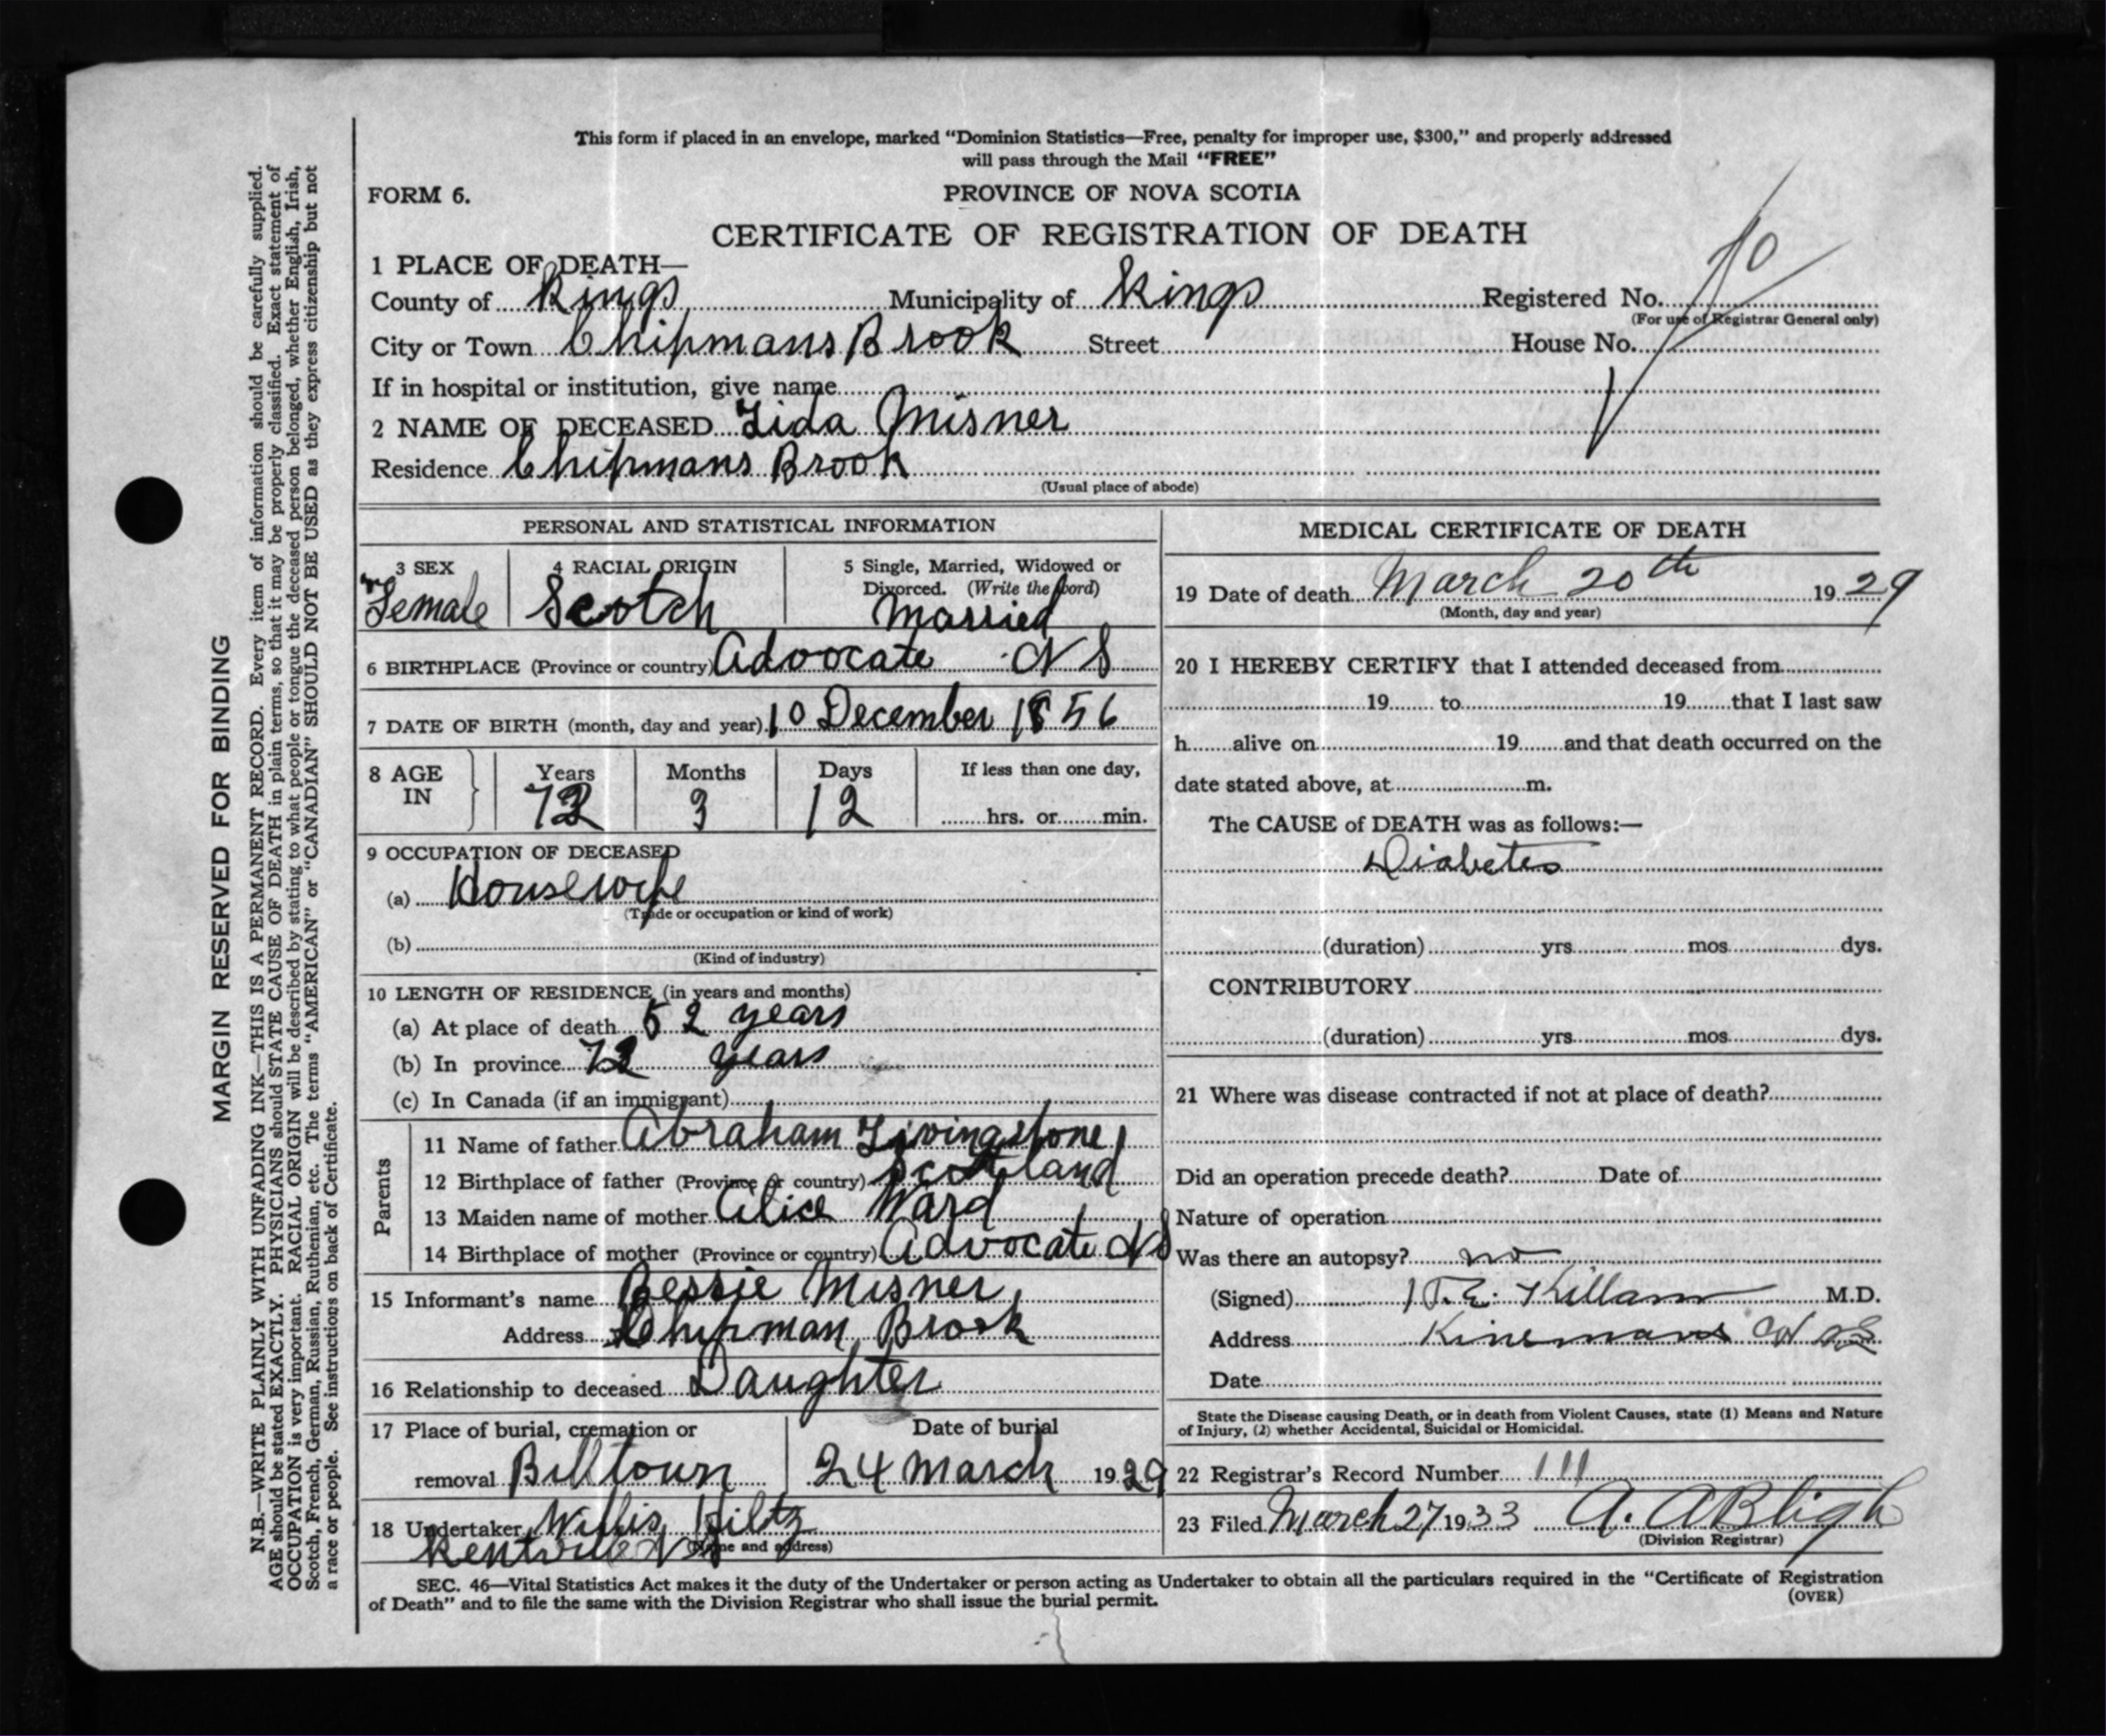 This form if placed in an envelope, marked "Dominion Statistics—Free, penalty for improper use, $300," and properly addressed
will pass through the Mail "FREE"
FORM 6. PROVINCE OF NOVA SCOTIA
CERTIFICATE OF REGISTRATION OF DEATH
1 PLACE OF DEATH—
County of Kings Municipality of Kings Registered No.
(For use of Registrar General only)
City or Town Chipmans Brook Street House No.
If in hospital or institution, give name
2 NAME OF DECEASED Lida Misner
Residence Chipmans Brook
(Usual place of abode)
PERSONAL AND STATISTICAL INFORMATION
3 SEX 4 RACIAL ORIGIN 5 Single, Married, Widowed or
Divorced. (Write the word)
Female Scotch Married
6 BIRTHPLACE (Province or country) Advocate N S
7 DATE OF BIRTH (month, day and year) 10 December 1856
8 AGE IN Years Months Days If less than one day,
72 3 12 hrs. or min.
9 OCCUPATION OF DECEASED
(a) Housewife
(Trade or occupation or kind of work)
(b)
(Kind of industry)
10 LENGTH OF RESIDENCE (in years and months)
(a) At place of death 52 years
(b) In province 72 years
(c) In Canada (if an immigrant)
Parents
11 Name of father Abraham Livingstone
12 Birthplace of father (Province or country) Scotland
13 Maiden name of mother Alice Ward
14 Birthplace of mother (Province or country) Advocate NS
15 Informant's name Bessie Misner
Address Chipman Brook
16 Relationship to deceased Daughter
17 Place of burial, cremation or Date of burial
removal Billtown 24 March 1929
18 Undertaker Willis Hiltz
Kentville NS (Name and address)
MEDICAL CERTIFICATE OF DEATH
19 Date of death March 20th 1929
(Month, day and year)
20 I HEREBY CERTIFY that I attended deceased from
19 to 19 that I last saw
h alive on 19 and that death occurred on the
date stated above, at m.
The CAUSE of DEATH was as follows:—
Diabetes
(duration) yrs. mos. dys.
CONTRIBUTORY
(duration) yrs. mos. dys.
21 Where was disease contracted if not at place of death?
Did an operation precede death? Date of
Nature of operation
Was there an autopsy? no
(Signed) Killam M.D.
Address Kinsmans
Date
State the Disease causing Death, or in death from Violent Causes, state (1) Means and Nature
of Injury, (2) whether Accidental, Suicidal or Homicidal.
22 Registrar's Record Number 111
23 Filed March 27 1933 A. A Bligh
(Division Registrar)
SEC. 46—Vital Statistics Act makes it the duty of the Undertaker or person acting as Undertaker to obtain all the particulars required in the "Certificate of Registration
of Death" and to file the same with the Division Registrar who shall issue the burial permit. (OVER)
MARGIN RESERVED FOR BINDING
N.B.—WRITE PLAINLY WITH UNFADING INK—THIS IS A PERMANENT RECORD. Every item of information should be carefully supplied.
AGE should be stated EXACTLY. PHYSICIANS should STATE CAUSE OF DEATH in plain terms, so that it may be properly classified. Exact statement of
OCCUPATION is very important. RACIAL ORIGIN will be described by stating to what people or tongue the deceased person belonged, whether English, Irish,
Scotch, French, German, Russian, Ruthenian, etc. The terms "AMERICAN" or "CANADIAN" SHOULD NOT BE USED as they express citizenship but not
a race or people. See instructions on back of Certificate.